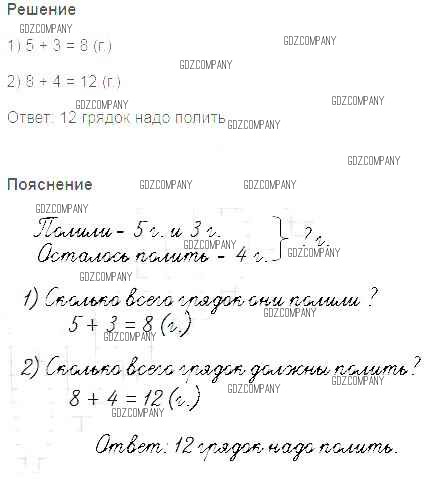 Решение
GDZCOMPANY
1) 5 + 3 = 8 (г.)
GDZCOMPANY
GDZCOMPANY
2) 8 + 4 = 12 (г.)
GDZCOMPANY
GDZCOMPANY
Ответ: 12 грядок надо полить
GDZCOMPANY
GDZCOMPANY
Пояснение
GDZCOMPANY
GDZCOMPANY
GDZCOMPANY
Полили - 5 г. и 3 г.
GDZCOMPANY
? г.
GDZCOMPANY
Осталось полить - 4 г.
GDZCOMPANY
1) Сколько всего грядок они полили?
GDZCOMPANY
5 + 3 = 8 (г.)
GDZCOMPANY
2) Сколько всего грядок должны полить?
GDZCOMPANY
GDZCOMPANY
8 + 4 = 12 (г.)
GDZCOMPANY
GDZCOMPANY
Ответ: 12 грядок надо полить.